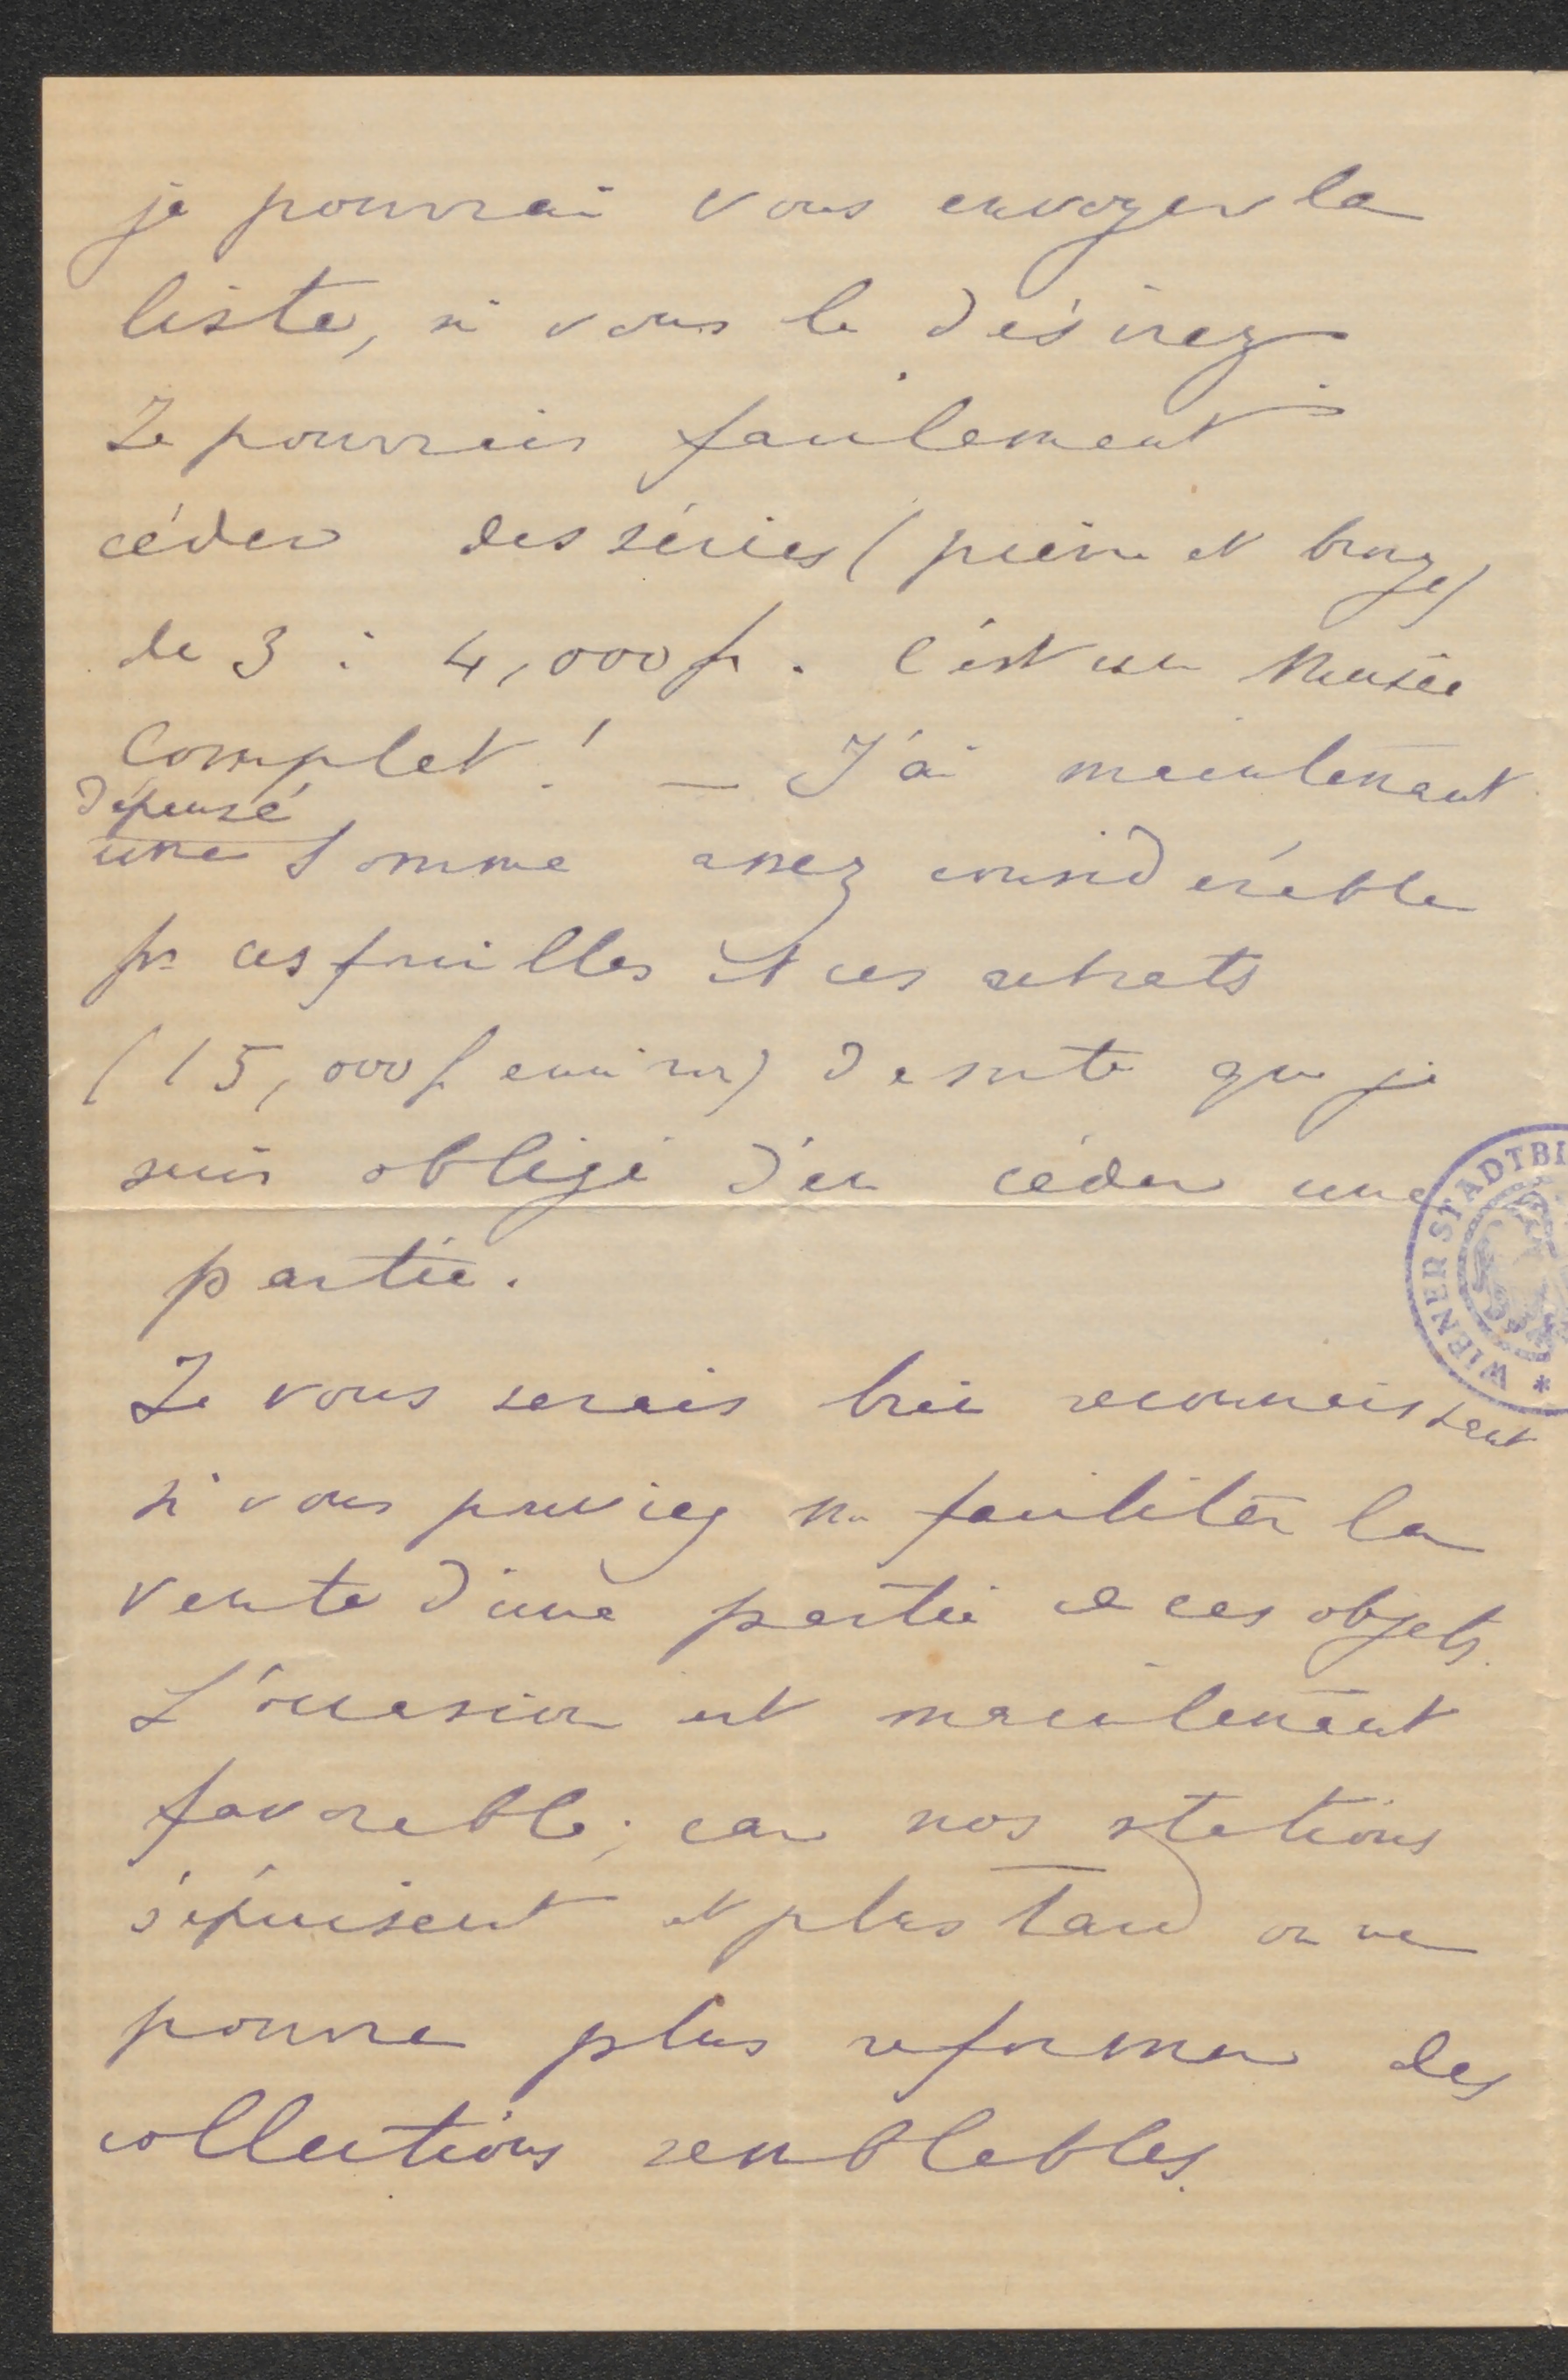 je pourrai vous envoyer la
liste, si vous le désirez.
Je pourrais facilement
céder des séries (pierre et bronze)
de 3 à 4,000 fr. C'est un Musée
Complet! — J'ai maintenant
dépensé
une somme assez considérable
pr ces fouilles et ces achats
(15,000 f environ) de sorte que je
suis obligé d'en céder une
partie.
Je vous serais bien reconnaissant
si vous pouviez me faciliter la
vente d'une partie de ces objets.
L'occasion est maintenant
favorable; car nos stations
s'épuisent et plus tard on ne
pourra plus reformer des
collections semblables.
WIENER STADTBI